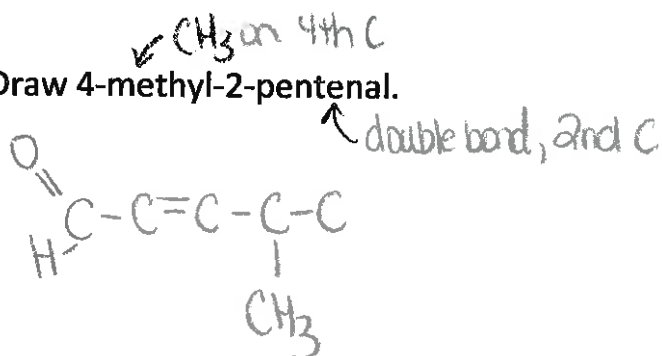 CH3 on 4th C
Draw 4-methyl-2-pentenal.
double bond, 2nd C
O
C-C=C-C-C
H
CH3